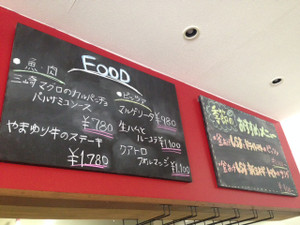 FOOD
魚・肉
三崎マグロのカルパッチョ
バルサミコソース
¥780
やまゆり牛のステーキ
¥1,780
ピッツァ
マルゲリータ ¥980
生ハムと
ルーコラ ¥1,100
クアトロ
フォルマッジ ¥1,100
季節の
おすすめメニュー